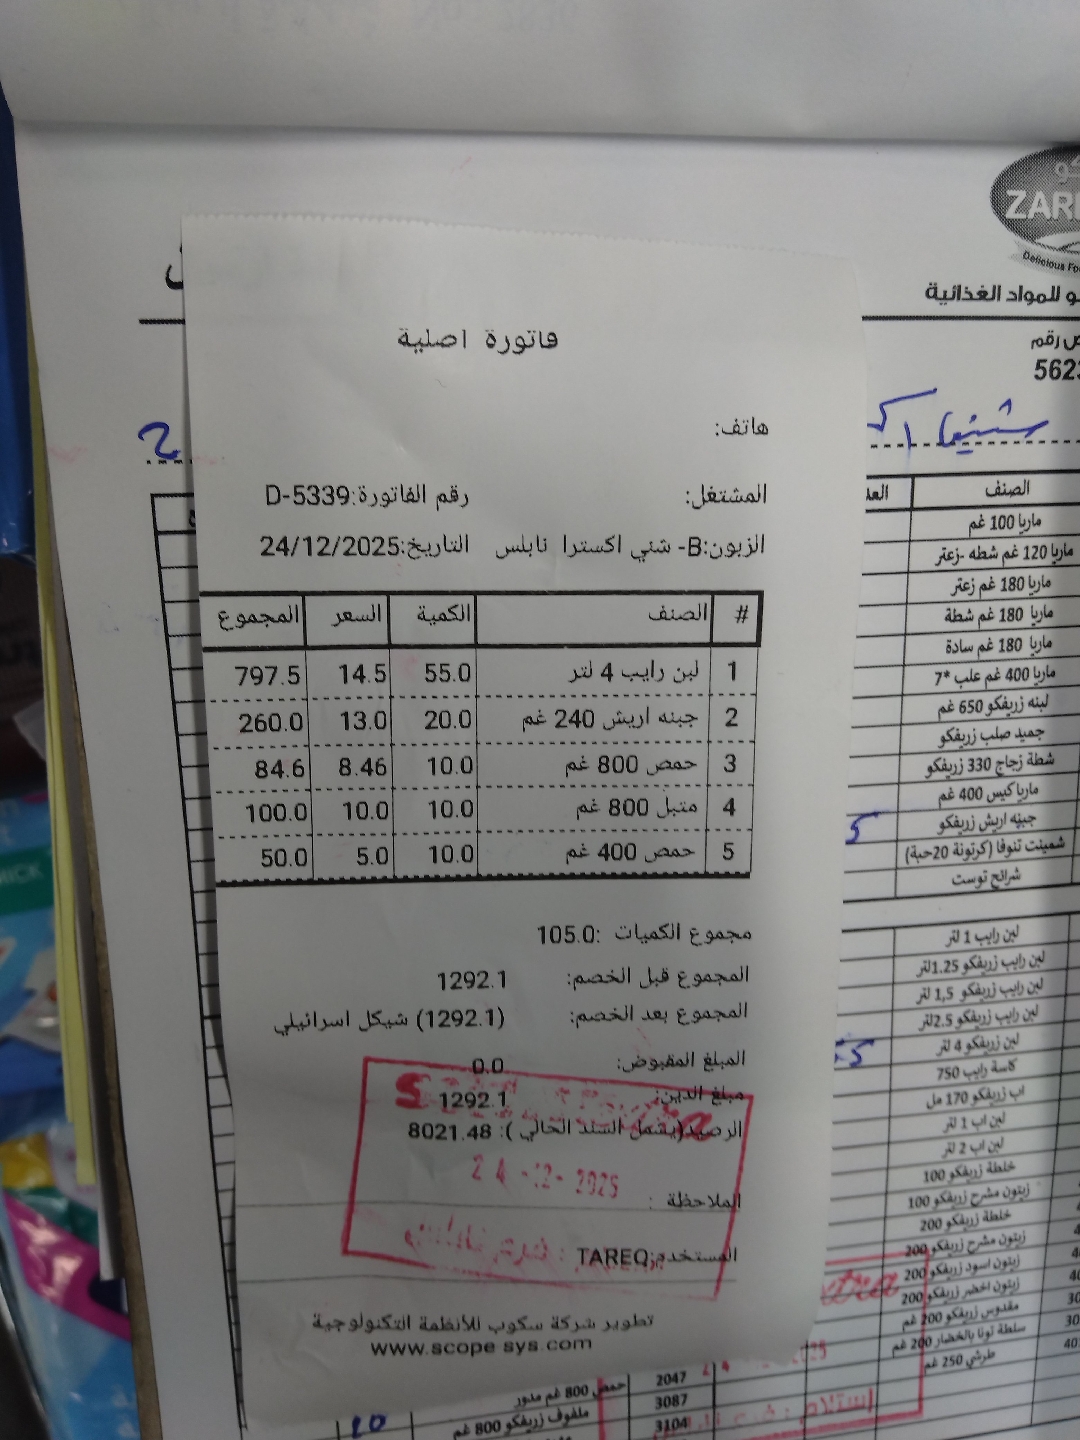 ZAR
Delicious Fo
و للمواد الغذائية
ض رقم
5623
شنيا اك
فاتورة اصلية
هاتف:
المشتغل: رقم الفاتورة:D-5339
الزبون:B- شني اكسترا نابلس التاريخ:24/12/2025
# الصنف الكمية السعر المجموع
1 لبن رايب 4 لتر 55.0 14.5 797.5
2 جبنه اريش 240 غم 20.0 13.0 260.0
3 حمص 800 غم 10.0 8.46 84.6
4 متبل 800 غم 10.0 10.0 100.0
5 حمص 400 غم 10.0 5.0 50.0
مجموع الكميات :105.0
المجموع قبل الخصم: 1292.1
المجموع بعد الخصم: (1292.1) شيكل اسرائيلي
المبلغ المقبوض: 0.0
مبلغ الدين: 1292.1
الرصيد(يشمل السند الحالي ): 8021.48
24-12-2025
الملاحظة :
المستخدم:TAREQ
تطوير شركة سكوب للأنظمة التكنولوجية
www.scope-sys.com
الصنف العد
ماريا 100 غم
ماريا 120 غم شطه -زعتر
ماريا 180 غم زعتر
ماريا 180 غم شطة
ماريا 180 غم سادة
ماريا 400 غم علب *7
لبنه زريفكو 650 غم
جميد صلب زريفكو
شطة زجاج 330 زريفكو
ماريا كيس 400 غم
جبنه اريش زريفكو
شمينت تنوفا (كرتونة 20حبة)
شرائح توست
لبن رايب 1 لتر
لبن رايب زريفكو 1.25لتر
لبن رايب زريفكو 1,5 لتر
لبن رايب زريفكو 2.5لتر
لبن زريفكو 4 لتر
كاسة رايب 750
اب زريفكو 170 مل
لبن اب 1 لتر
لبن اب 2 لتر
خلطة زريفكو 100
زيتون مشرح زريفكو 100
خلطة زريفكو 200
زيتون مشرح زريفكو 200
زيتون اسود زريفكو 200
زيتون اخضر زريفكو 200
مقدوس زريفكو 200 غم
سلطة تونا بالخضار 200 غم
طرشي 250 غم
2047 حمص 800 غم مدور
3087 ملفوف زريفكو 800 غم
3104